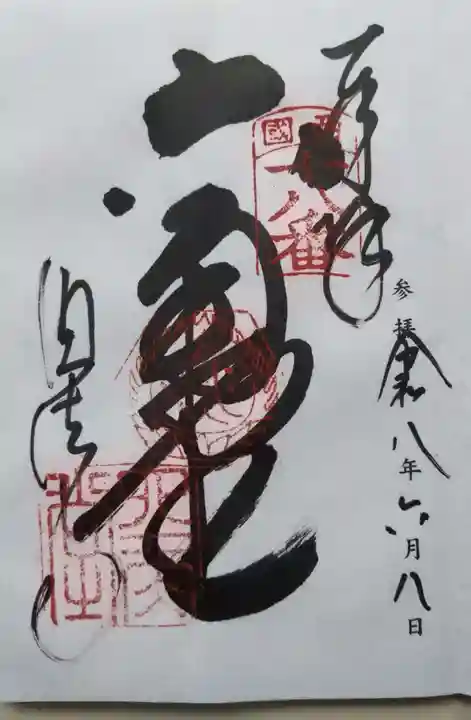 参拝 令和八年六月八日
奉拝
西國
十八番
六角堂
頂法寺